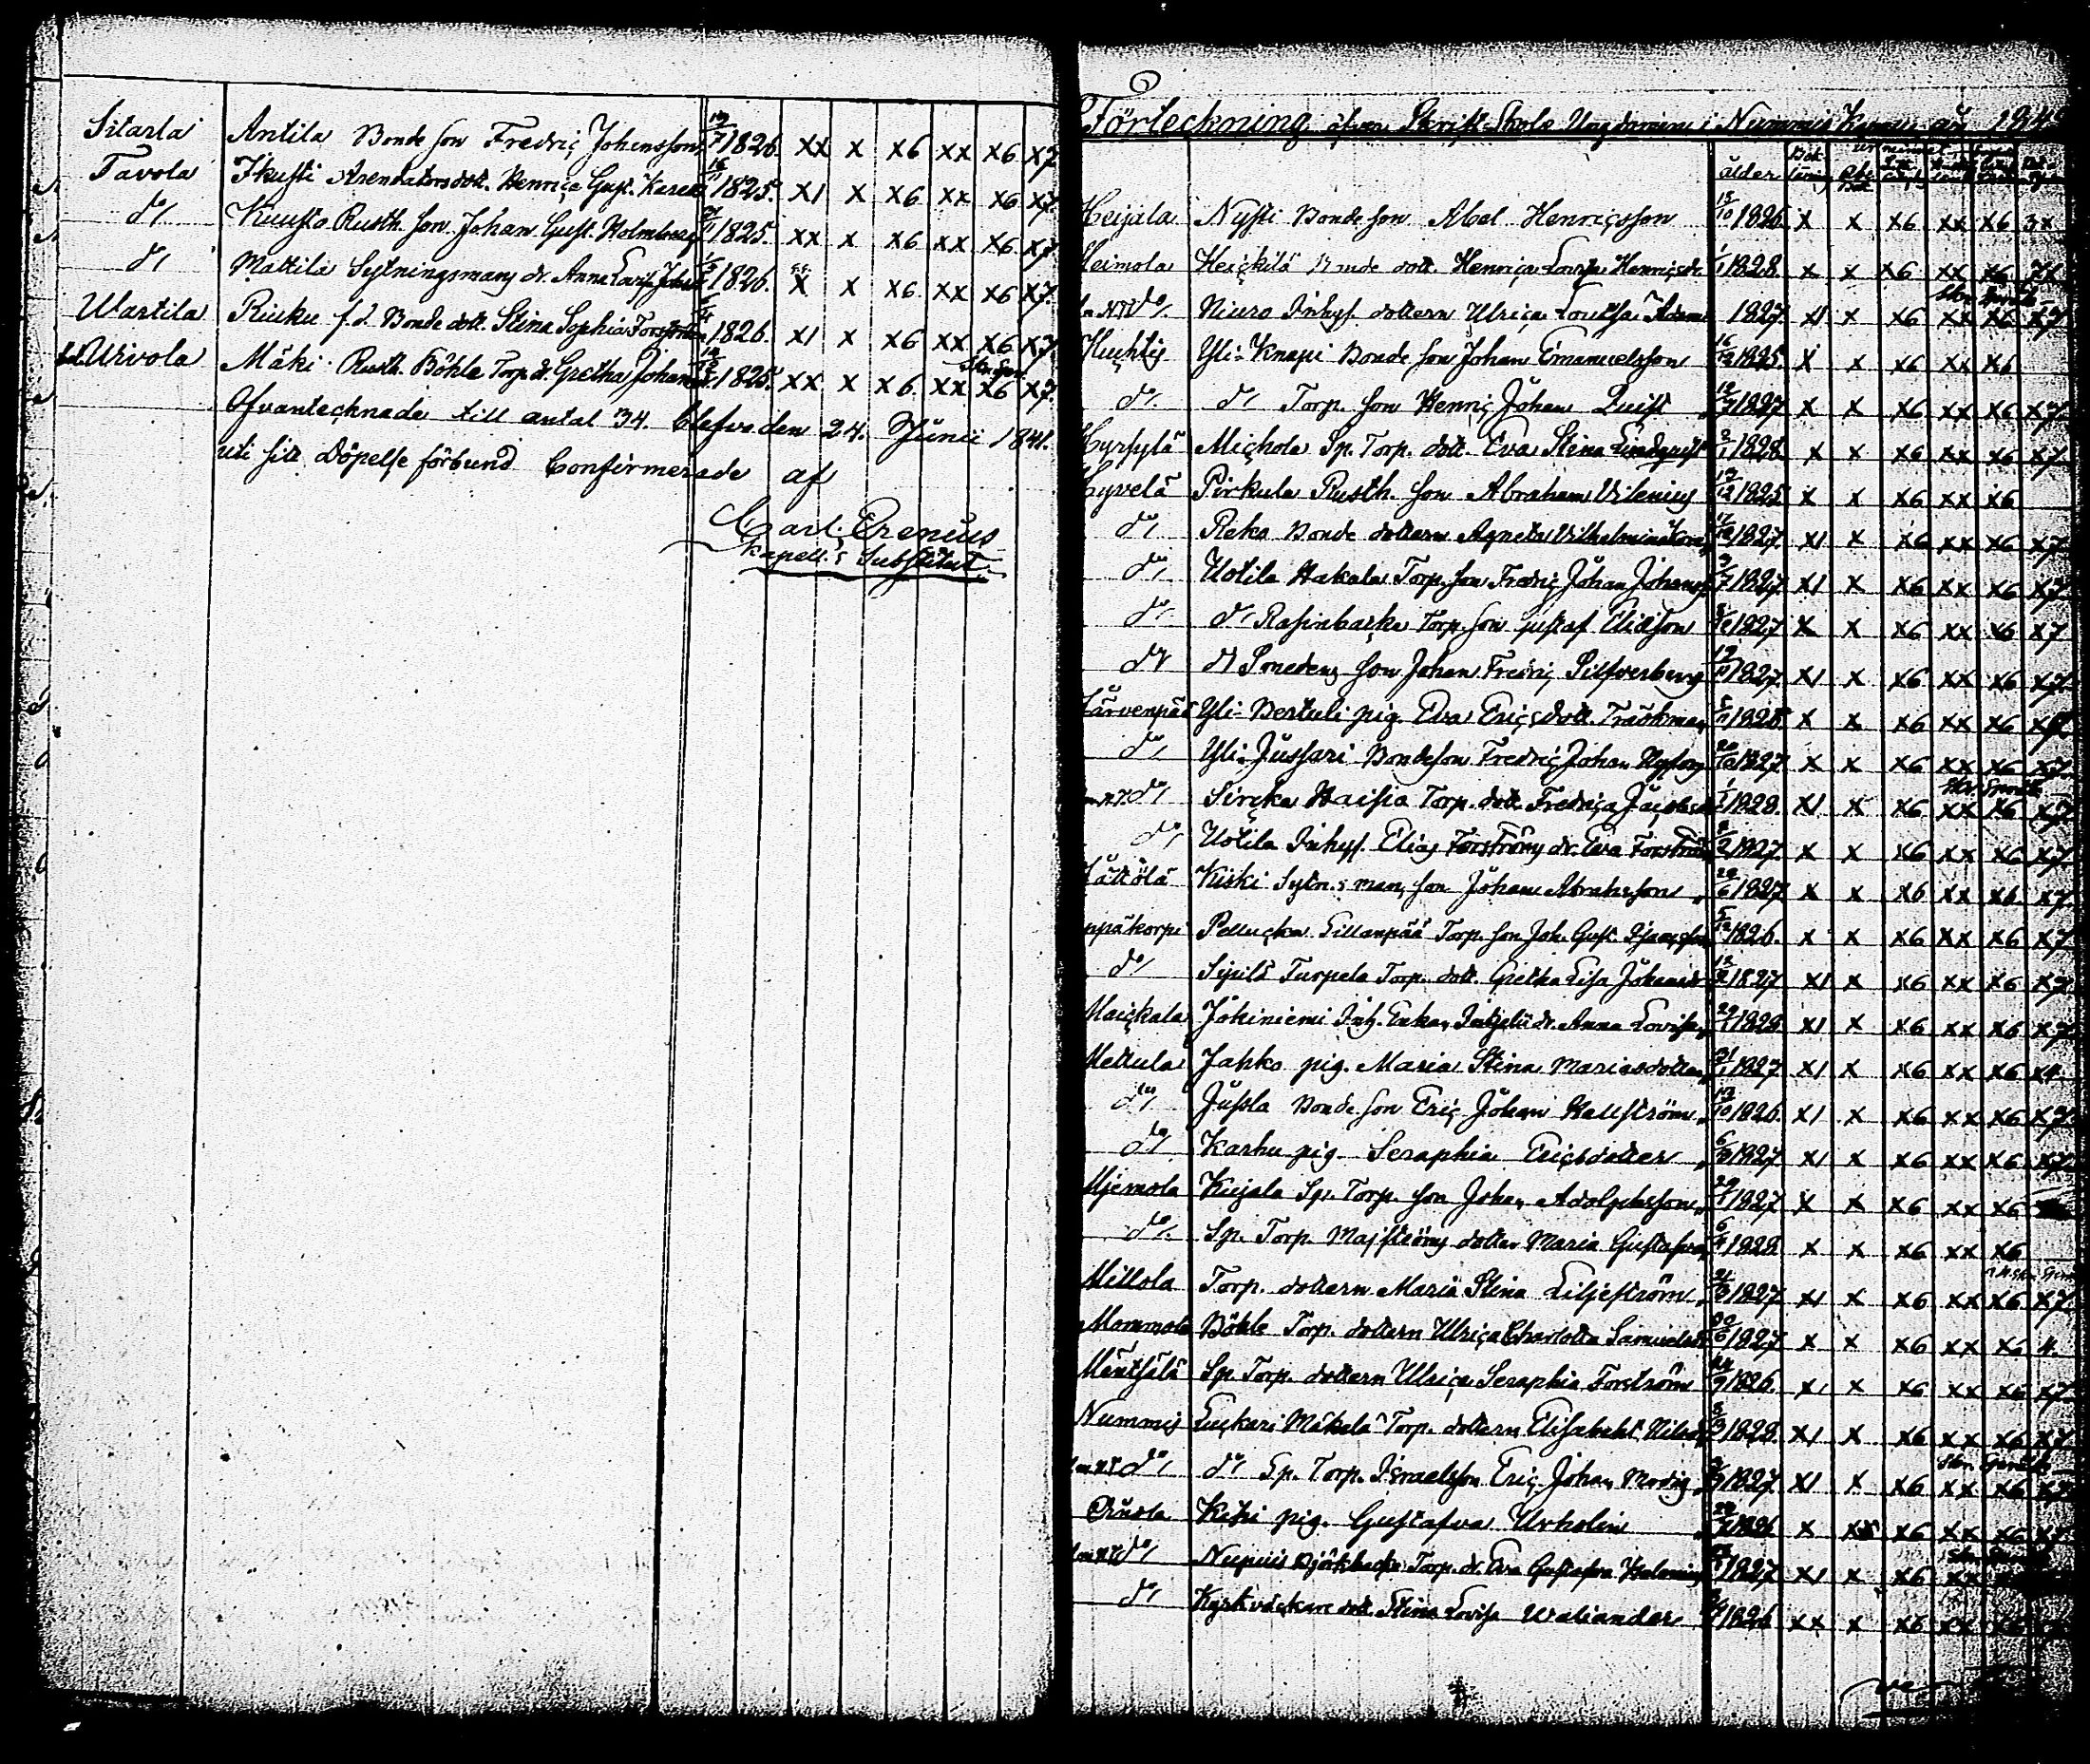 Sitarla Antila Bonde son Fredriç Johansson 19/7 1826. xx x x6 xx x6 x7
Tavola Ikusti Arendators dott. Henriça Gust. 1825. x1 x x6 xx x6 x7.
do/ Kuusto Rusth. son Johan Gust. Holmberg 1825. xx x x6 xx x6 x7
do/ Mattila Sytningsmans dr. Anna Lovisa 1826. x x x6 xx x6 x7
Wartila Riuku f.d. Bonde dott. Stina Sophia 1826. x1 x x6 xx x6 x7
Urivola Mäki Rusth. Böhle Torp. dr. Gretha Johans 1825. xx x x6 xx x6 x7.
Ofvantecknade till antal 34. blefvo den 24. Junii 1841.
uti sitt Döpelse förbund Confirmerade af
Carl Erenius
kapell:s Substitut.
Förteckning öfver Skrift-Skole Ungdomen i Nummis år 184
ålder
Heijala Nyssti Bonde son Abel Henricsson 13/10 1826. x x x6 xx x6 3x
Heimola Heickilä Bonde dott. Henrica Lovisa Henricsdr 1/1 1828 x x x6 xx x6 7x
do/. Niuro Inhys. dottern Ulrica Lovisa Adams 1827. x1 x x6 xx x6 x7
Huchtis Yli-Knapi Bonde son Johan Emanuelsson 16/12 1825. x x x6 xx x6
do/. do/ Torp. son Henriç Johan Quist 1827 x x x6 xx x6 x7
Hyrsylä Michola Sp. Torp. dott. Eva Stina Lindqvist 1828 x x x6 xx x6 x7
Hyvelä Pirkula Rusth. son Abraham Vilenius 12/12 1825 x x x6 xx x6
do/ Reko Bonde dottern Agneta Vilhelmina 1827. x1 x x6 xx x6 x7
do/ Uotila Hakala Torp. son Fredriç Johan Johanss 3/7 1827 x1 x x6 xx x6 x7
do/ do/ Rasinbacka Torp. son Gustaf Eliasson 1827 x x x6 xx x6 x7
do/ do/ Smedens son Johan Fredriç Silfverberg 1827. x1 x x6 xx x6 x7
Järvenpää Yli-Bertuli pig. Eva Ericsdott. Träskman 5/11 1825. x x x6 xx x6
do/ Yli-Jussari Bondeson Fredriç Johan 20/10 1827 x x x6 xx x6 x7.
do/ Sircka Haisia Torp. dott. Fredriça Jacobs 1828. x1 x x6 xx x6 x7
do/ Uotila Inhys. Elias Forströms dr. Eva Forström 1827. x x x6 xx x6 x7
Jättölä Kiiski Sytn:s mans son Johan Abrahsson 28/6 1827 x x x6 xx x6 x7.
Leppäkorpi Pellucka Lillanpää Torp. son Joh. Gust. 5/12 1826. x x x6 xx x6 x7
do/ Sipilä Turpela Torp. dott. Gretha Lisa Johansdr 1827 x1 x x6 xx x6 x7
Maickala Johiniemi Inh. Enkan dr. Anna Lovisa 1828 x1 x x6 xx x6 x7
Mettula Jahko pig. Maria Stina Mariasdotter 31/1 1827 x1 x x6 xx x6 x4.
do/ Jussla Bonde son Eriç Johan Hallström 12/10 1826. x1 x x6 xx x6 x7
do/ Karhu pig. Seraphia Ericsdotter 1827 x1 x x6 xx x6 x7
Mjemola Kujala Sp. Torp. son Johan Adolphsson 1827 x x x6 xx x6
do/. Sp. Torp. Majströms dotter Maria Gustafva 1828. x x x6 xx x6
Millola Torp. dottern Maria Stina Liljeström 1827 x1 x x6 xx x6 x7.
Mommola Böhle Torp. dottern Ulrica Charlotta Samuelsdr 1827 x x x6 xx x6 4.
Mäntsälä Sp. Torp. dottern Ulrica Seraphia Forström 1826. x1 x x6 xx x6 x7
Nummis Luckari Mäkelä Torp. dottern Elisabeht 1828. x1 x x6 xx x6 x7
do/ do/ Sp. Torp. Israelsson Eriç Johan Modig 1827 x1 x x6 xx x6 x7
Oinola Kihi pig. Gustafva Urholin 1826 x x5 x6 xx x6 x7
do/ Nupuis Björkbacka Torp. dr. Eva Gustafva 1827 x1 x x6 xx
do/ Kyrkväckare dott. Stina Lovisa Waliander 1826 xx x x6 xx x6